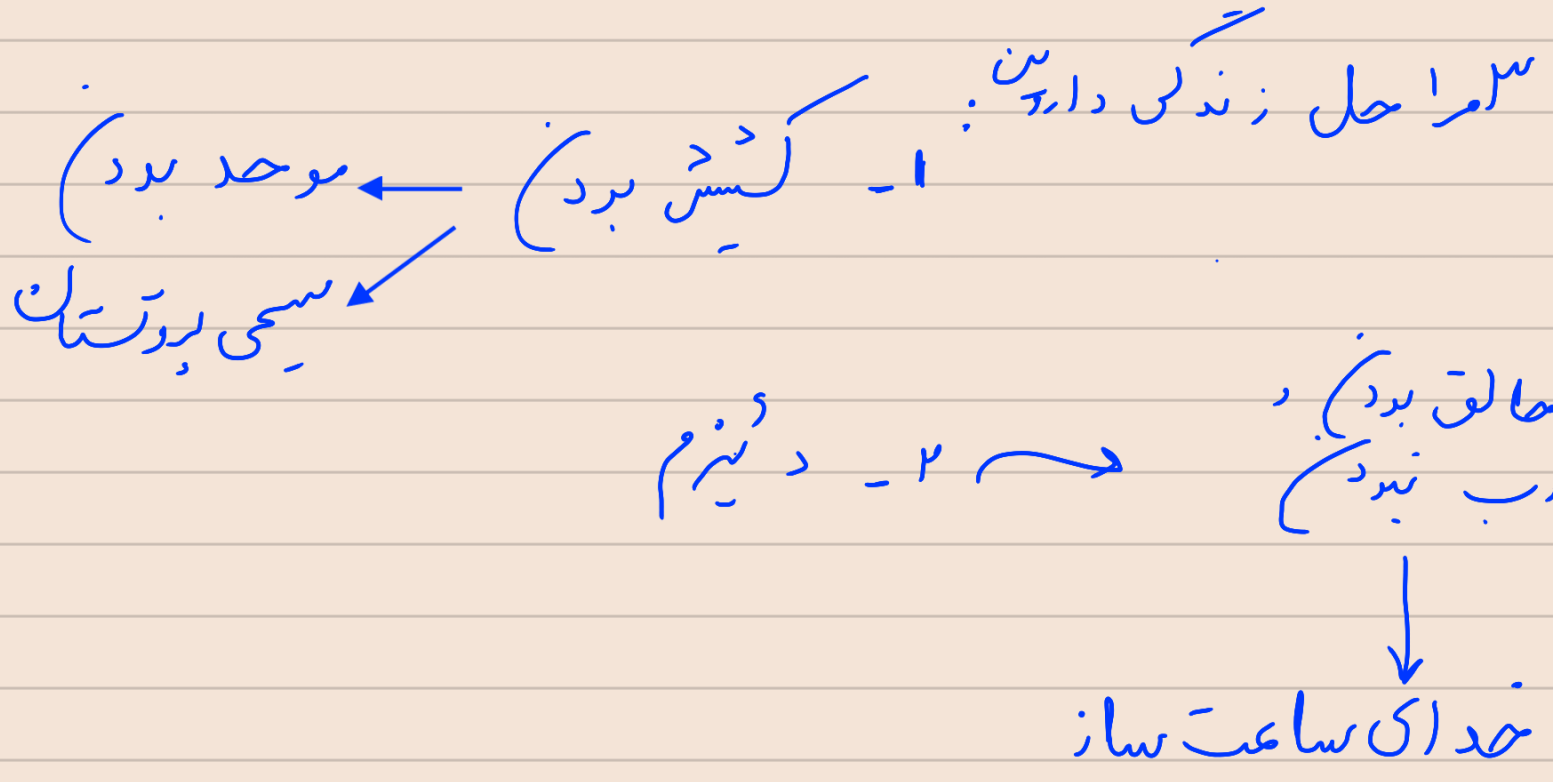 ۳ مراحل زندگی داروین :
۱ - کشیش بودن ← موحد بودن
مسیحی پروتستان
۲ - دئیزم → خالق بودن و
رب نبودن
خدای ساعت ساز